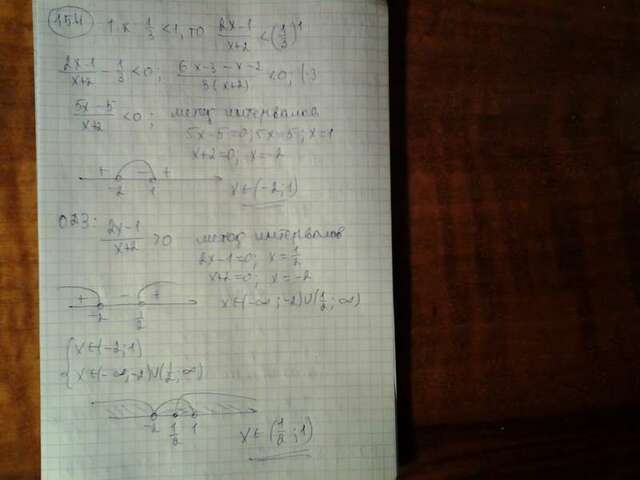 154 т.к 1/3 < 1, то (2x-1)/(x+2) < (1/3)^1
(2x-1)/(x+2) - 1/3 < 0; (6x-3-x-2)/(3(x+2)) < 0; | ·3
(5x-5)/(x+2) < 0; метод интервалов
5x-5=0; 5x=5; x=1
x+2=0; x=-2
+ - +
-2 1 x∈(-2;1)
ОДЗ: (2x-1)/(x+2) > 0 метод интервалов
2x-1=0; x=1/2
x+2=0; x=-2
+ - +
-2 1/2 x∈(-∞;-2)∪(1/2;∞)
{ x∈(-2;1)
x∈(-∞;-2)∪(1/2;∞)
-2 1/2 1 x∈(1/2;1)